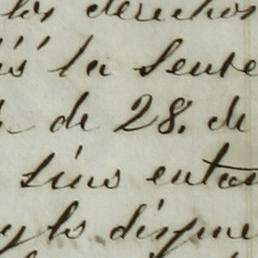 los derechos
la Sente
de 28. de
sino entas
y lo dispue